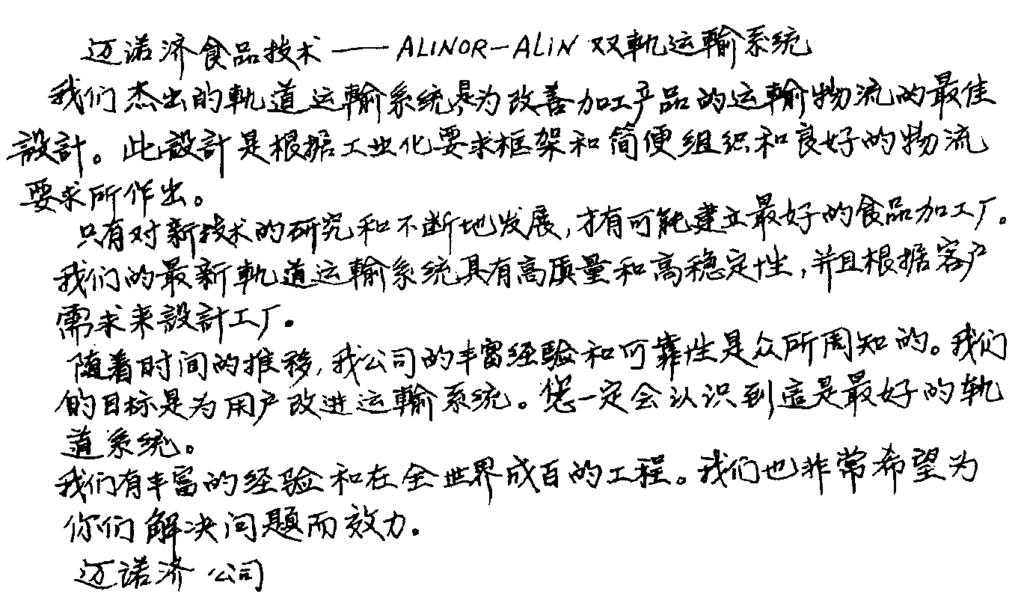 迈诺济食品技术——ALINOR-ALIN 双軌运輸系统
我们杰出的軌道运輸系统是为改善加工产品的运輸物流的最佳
設計。此設計是根据工业化要求框架和简便组织和良好的物流
要求所作出。
只有对新技术的研究和不断地发展,才有可能建立最好的食品加工厂。
我们的最新軌道运輸系统具有高质量和高稳定性,并且根据客户
需求来設計工厂。
随着时间的推移,我公司的丰富经验和可靠性是众所周知的。我们
的目标是为用户改进运輸系统。您一定会认识到這是最好的轨
道系统。
我们有丰富的经验和在全世界成百的工程。我们也非常希望为
你们解决问題而效力。
迈诺济 公司